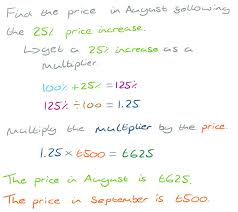 Find the price in August following
the 25% price increase.
↳get a 25% increase as a
multiplier.
100% + 25% = 125%
125% ÷ 100 = 1.25
Multiply the multiplier by the price.
1.25 × ₺500 = ₺625
The price in August is ₺625.
The price in September is ₺500.